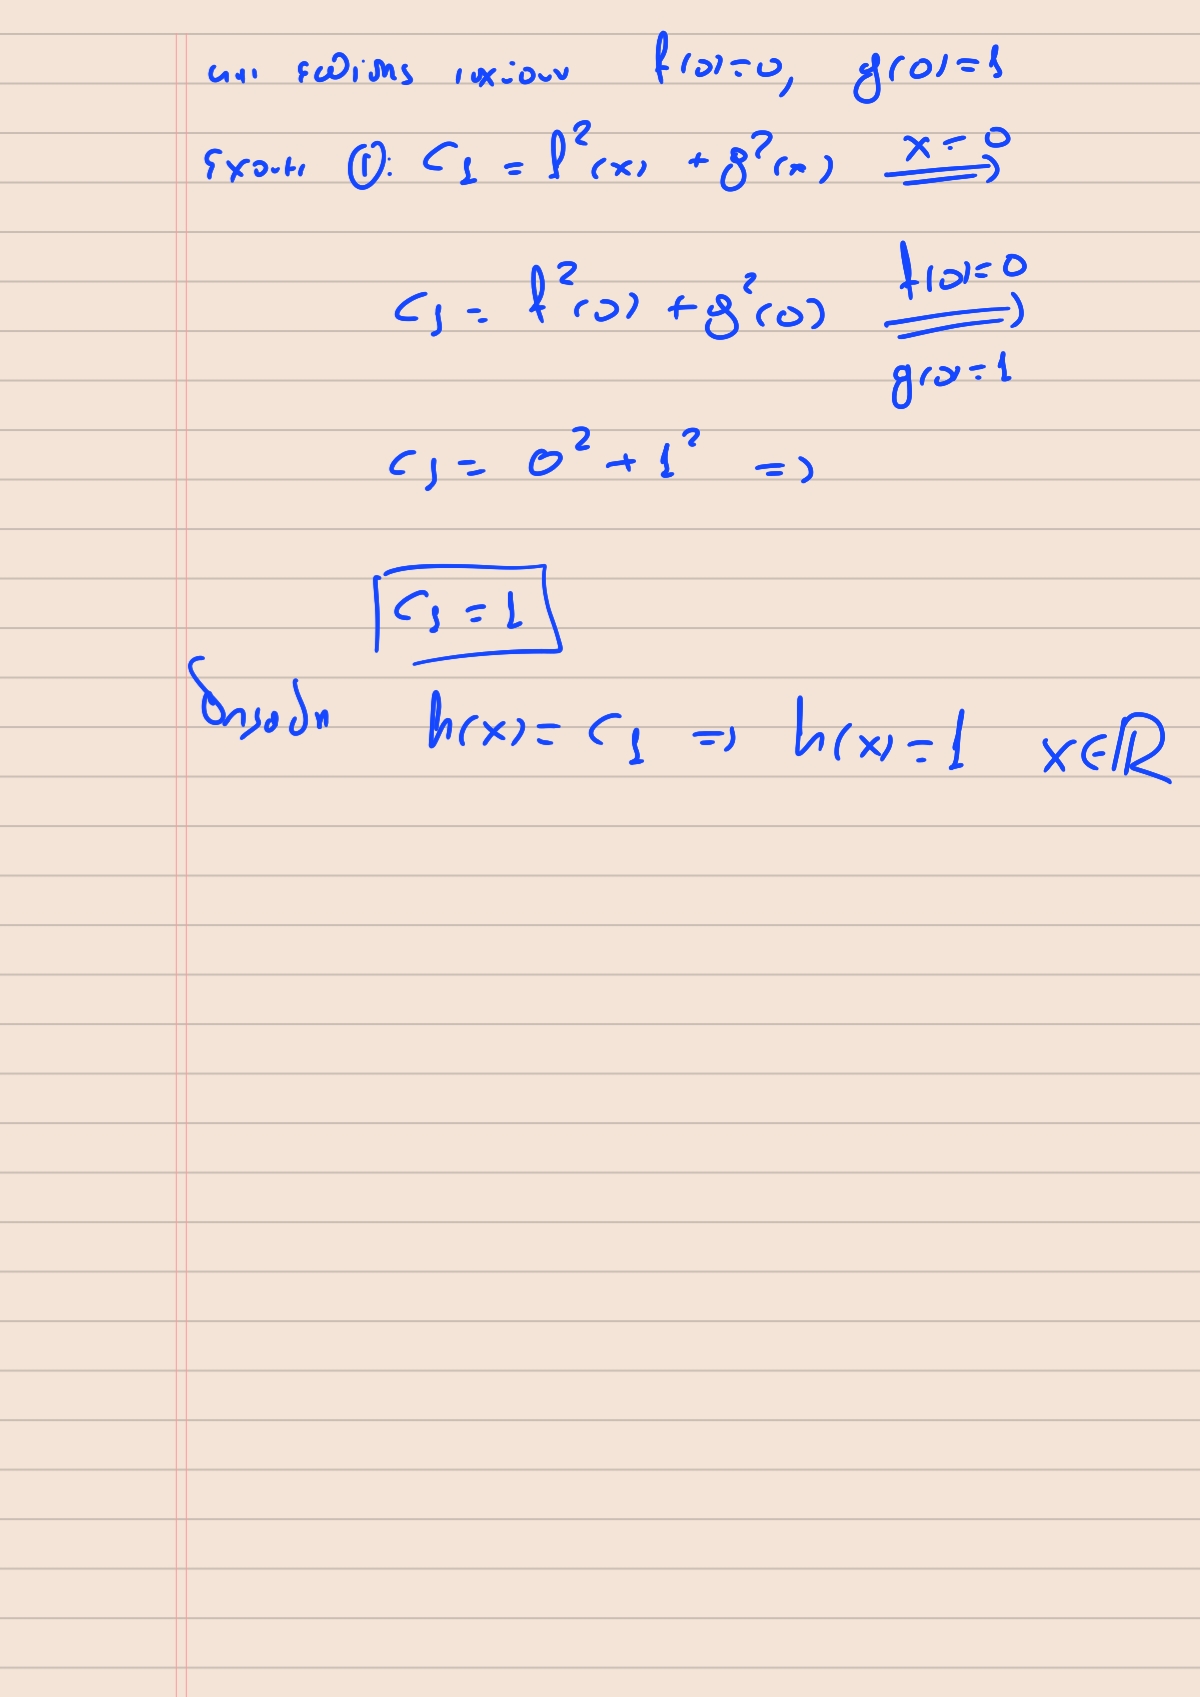 και επίσης ισχύουν f(0)=0, g(0)=1
έχουμε ①: c₁ = f²(x) + g²(x) x=0 ⇒
c₁ = f²(0) + g²(0) f(0)=0 ⇒ g(0)=1
c₁ = 0² + 1² =>
c₁ = 1
δηλαδή h(x) = c₁ => h(x) = 1 x∈ℝ